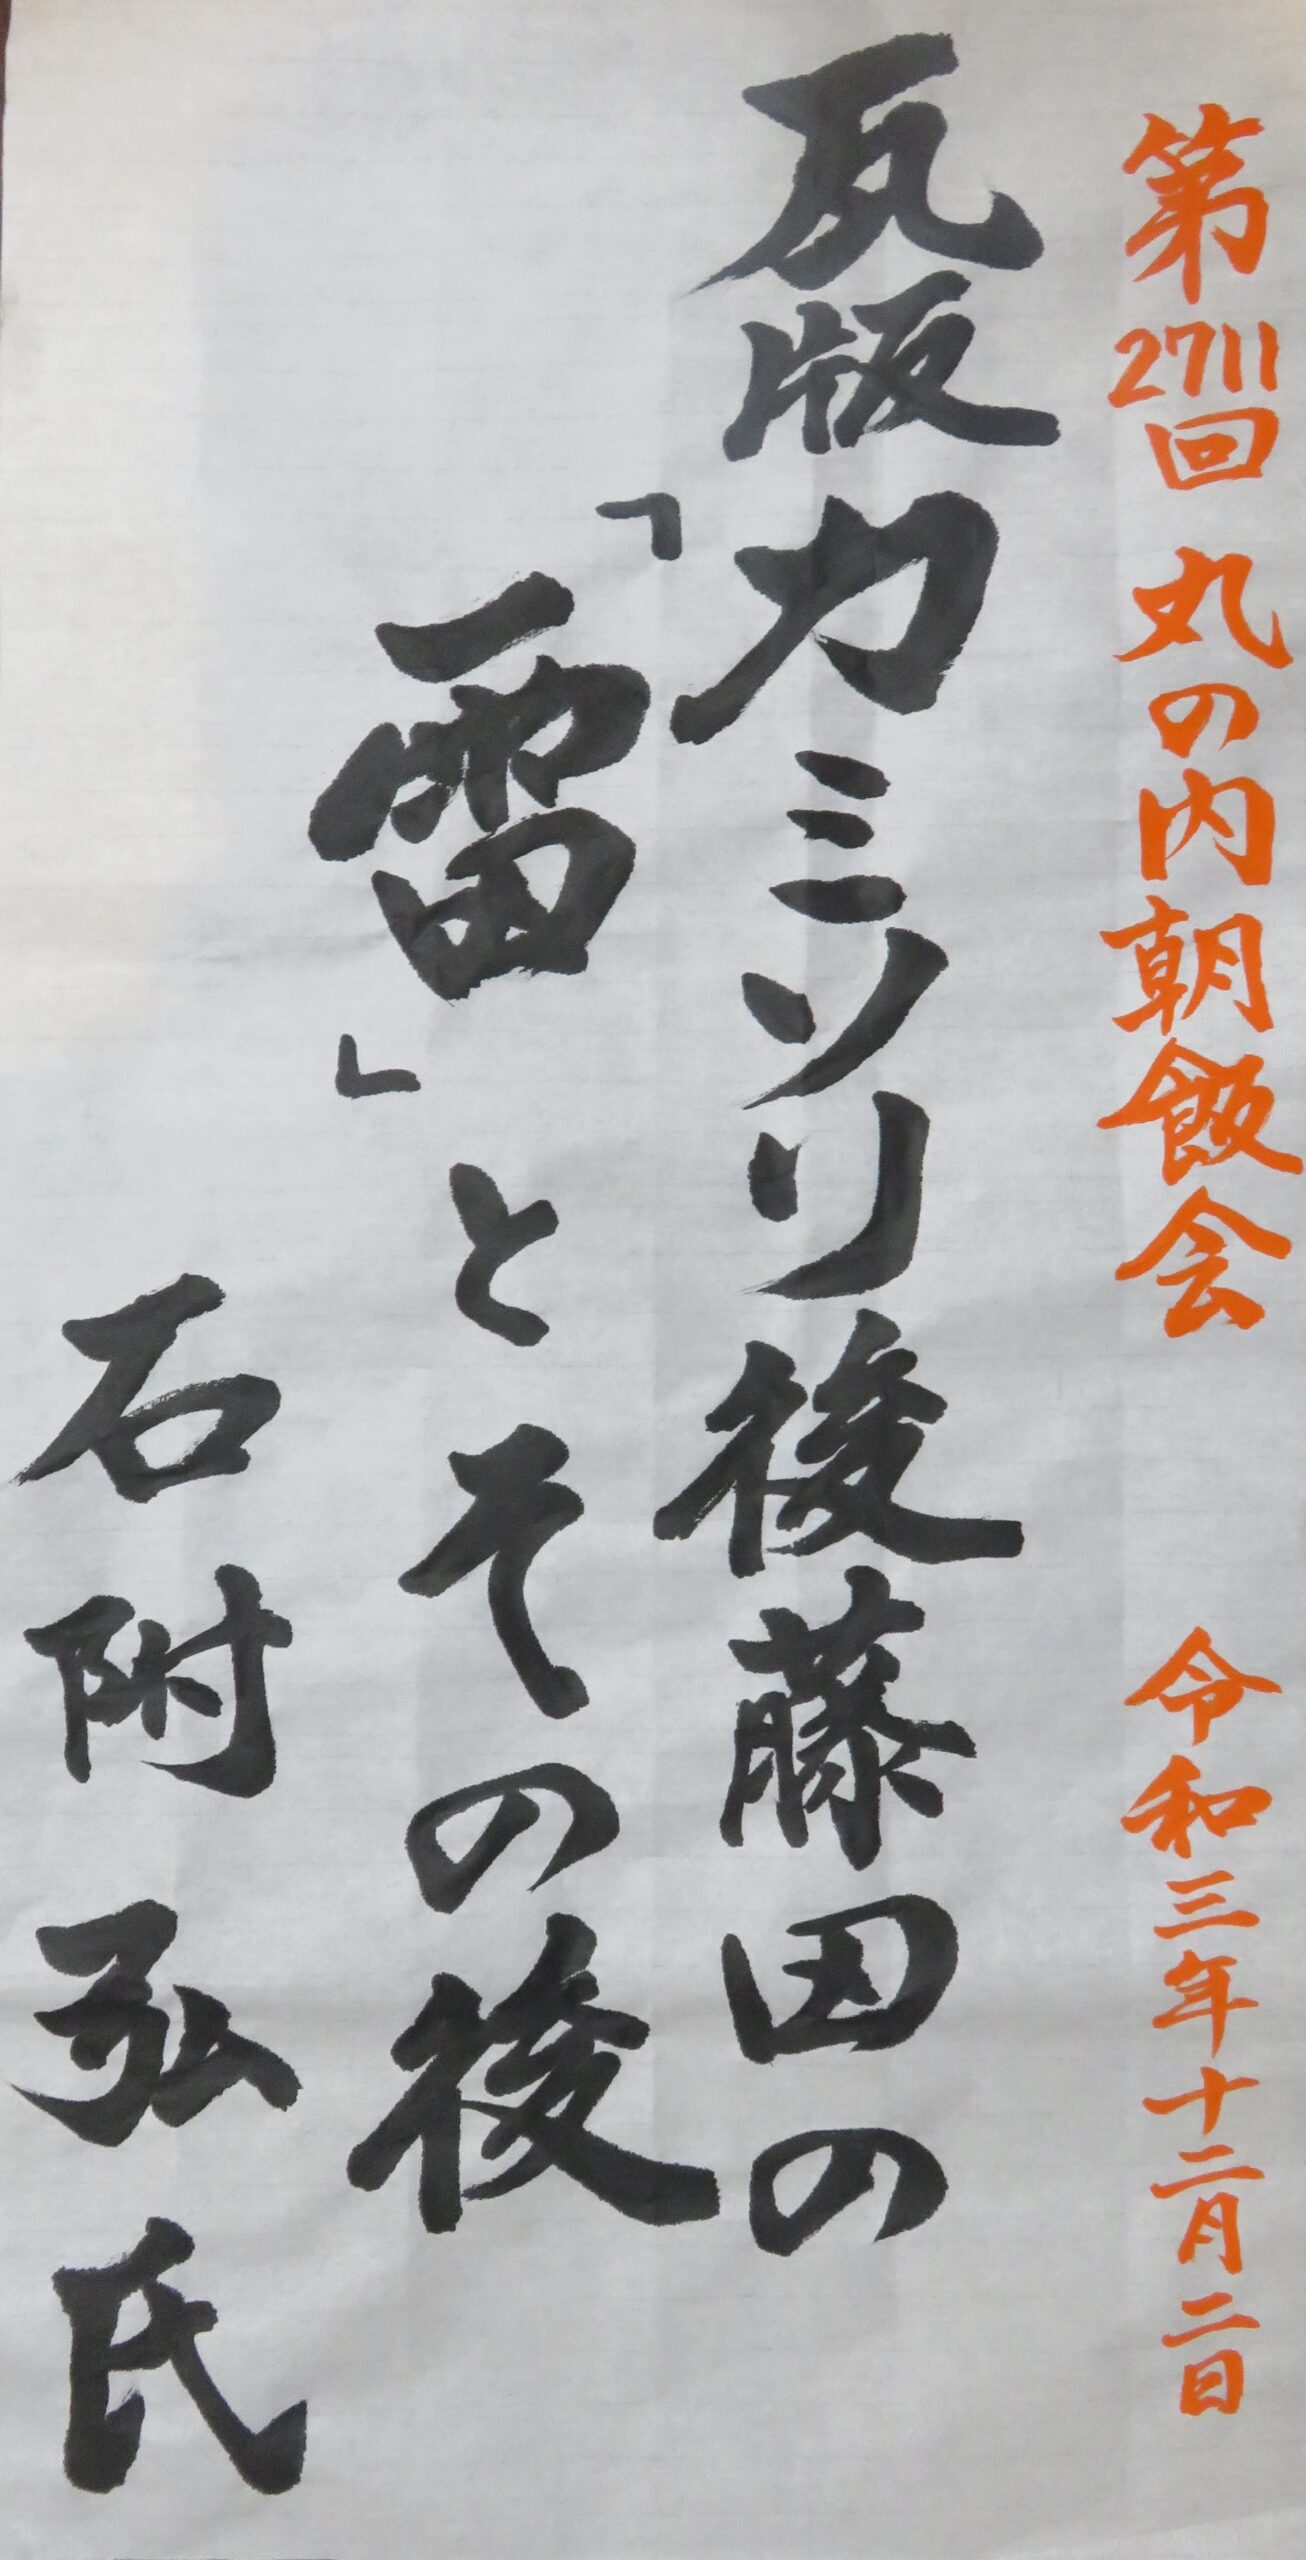 第2711回 丸の内朝飯会 令和三年十二月二日
瓦版カミソリ後藤田の
「雷」とその後
石附弘氏